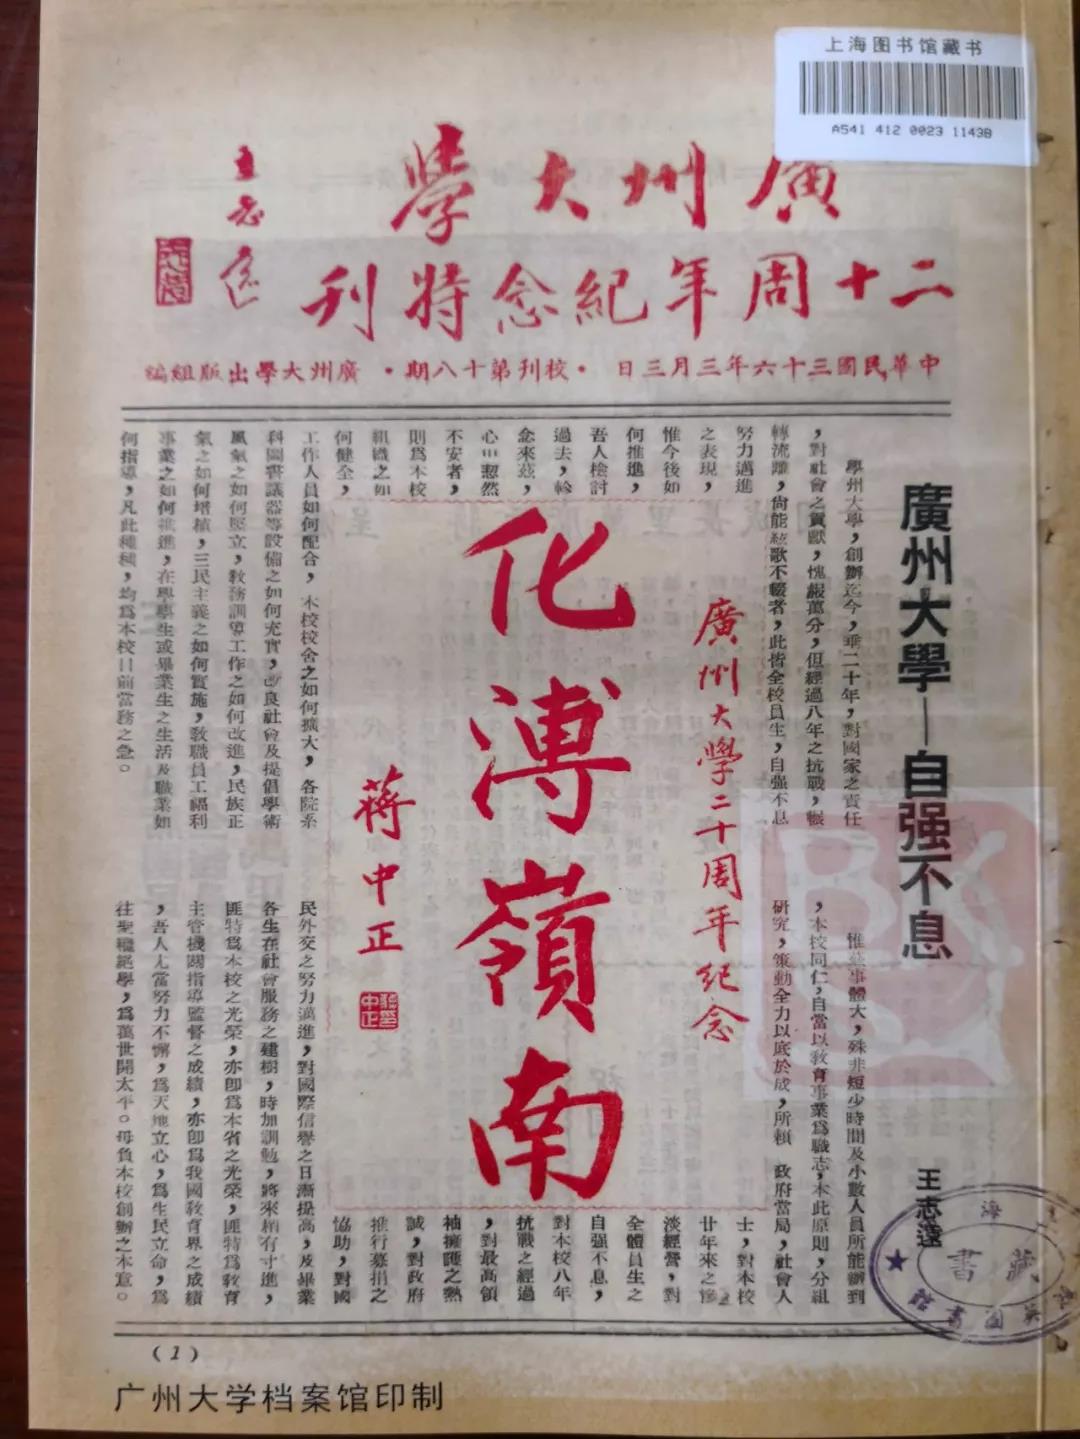 上海图书馆藏书
A541 412 0023 1143B
廣州大學
二十周年紀念特刊
王志遠
中華民國三十六年三月三日・校刊第十八期・廣州大學出版組編
廣州大學—自强不息
王志遠
學州大學，創辦迄今，垂二十年，對國家之責任
，對社會之貢獻，愧赧萬分，但經過八年之抗戰，輾
轉流離，尙能絃歌不輟者，此皆全校員生，自强不息
努力邁進
之表現，
惟今後如
何推進，
吾人檢討
過去，軫
念來茲，
心 惄然
不安者，
則爲本校
組織之如
何健全，
工作人員如何配合，本校校舍之如何擴大，各院系
科圖書議器等設備之如何充實，改良社會及提倡學術
風氣之如何堅立，敎務訓導工作之如何改進，民族正
氣之如何增植，三民主義之如何實施，敎職員工福利
事業之如何推進，在學學生或畢業生之生活及職業如
何指導，凡此種種，均爲本校目前當務之急。
廣州大學二十周年紀念
化溥嶺南
蔣中正
惟茲事體大，殊非短少時間及小數人員所能辦到
，本校同仁，自當以敎育事業爲職志，本此原則，分組
硏究，策動全力以底於成，所賴 政府當局，社會人
士，對本校
廿年來之慘
淡經營，對
全體員生之
自强不息，
對本校八年
抗戰之經過
，對最高領
袖擁護之熱
誠，對政府
推行募捐之
協助，對國
民外交之努力邁進，對國際信譽之日漸提高，及畢業
各生在社會服務之建樹，時加訓勉，將來稍有寸進，
匪特爲本校之光榮，亦卽爲本省之光榮，匪特爲敎育
主管機關指導監督之成績，亦卽爲我國敎育界之成績
，吾人尤當努力不懈，爲天地立心，爲生民立命，爲
往聖繼絕學，爲萬世開太平。毋負本校創辦之本意。
藏書
(1)
广州大学档案馆印制